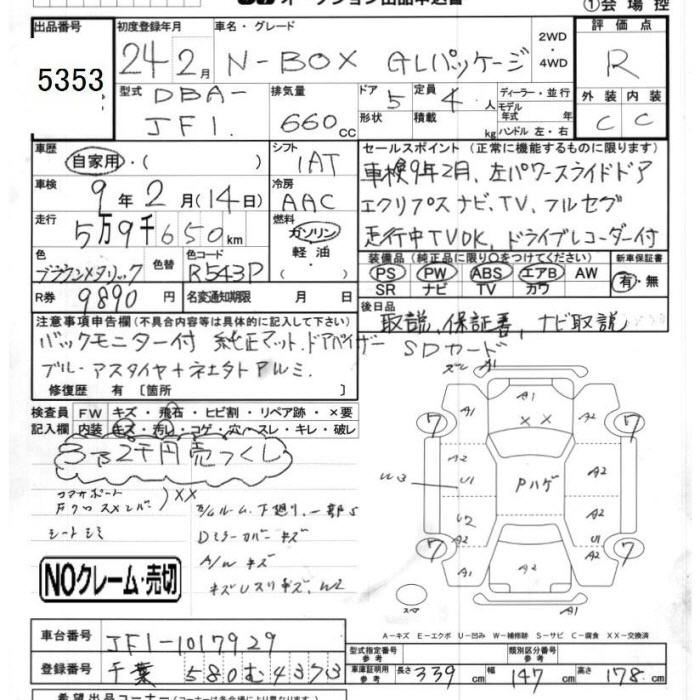 オークション出品申込書 ①会場控
出品番号 初度登録年月 車名・グレード 2WD・4WD 評価点
5353 24 2月 N-BOX GLパッケージ R
型式 DBA-JF1. 排気量 660cc ドア 5 定員 4人 ディーラー・並行 外装 内装
形状 積載 kg モデル年式 年 ハンドル 左・右 C C
車歴 自家用・( ) シフト IAT セールスポイント (正常に機能するものに限ります)
車検 9年2月(14日) 冷房 AAC 車検9年2月、左パワースライドドア
走行 5万9千650km 燃料 ガソリン エクリプスナビ、TV、フルセグ
軽油 走行中TVOK、ドライブレコーダー付
色 ブラウンメタリック 色替 色コード R543P 装備品 (純正品に限り○をつけてください) 新車保証書
PS PW ABS エアB AW 有・無
SR ナビ TV カワ
R券 9890円 名変通知期限 月 日 後日品
取説、保証書、ナビ取説
注意事項申告欄 (不具合内容等は具体的に記入して下さい) SDカード
バックモニター付 純正マット、ドアバイザー
修復歴 有 [箇所
検査員 FW キズ・飛石・ヒビ割・リペア跡・×要
記入欄 内装 キズ・汚レ・コゲ・穴・スレ・キレ・破レ
3万2千円売つくし
コアサポート
XX
シートシミ
Dミラーカバーキズ
A/Wキズ
NOクレーム・売切
ズレ A1
A1 A1 A2
7 XX 7
A2 U1 W3 Pハゲ A2
U2 A2
7 A2 A2 U1 7
A1 A2 A1
スペア A1
A-キズ E-エクボ U-凹み W-補修跡 S-サビ C-腐食 XX-交換済
車台番号 JF1-1017929 型式指定番号 参考 類別区分番号 参考
登録番号 千葉 580 む 4373 車庫証明用 参考 長さ 339cm 幅 147cm 高さ 178cm
希望出品コーナー